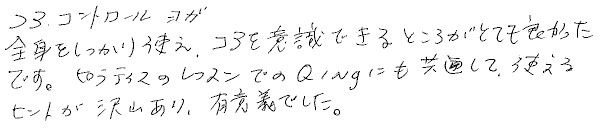 コア.コントロール ヨガ
全身をしっかり使え、コアを意識できるところがとても良かった
です。ピラティスのレッスンでのQingにも共通して、使える
ヒントが沢山あり、有意義でした。